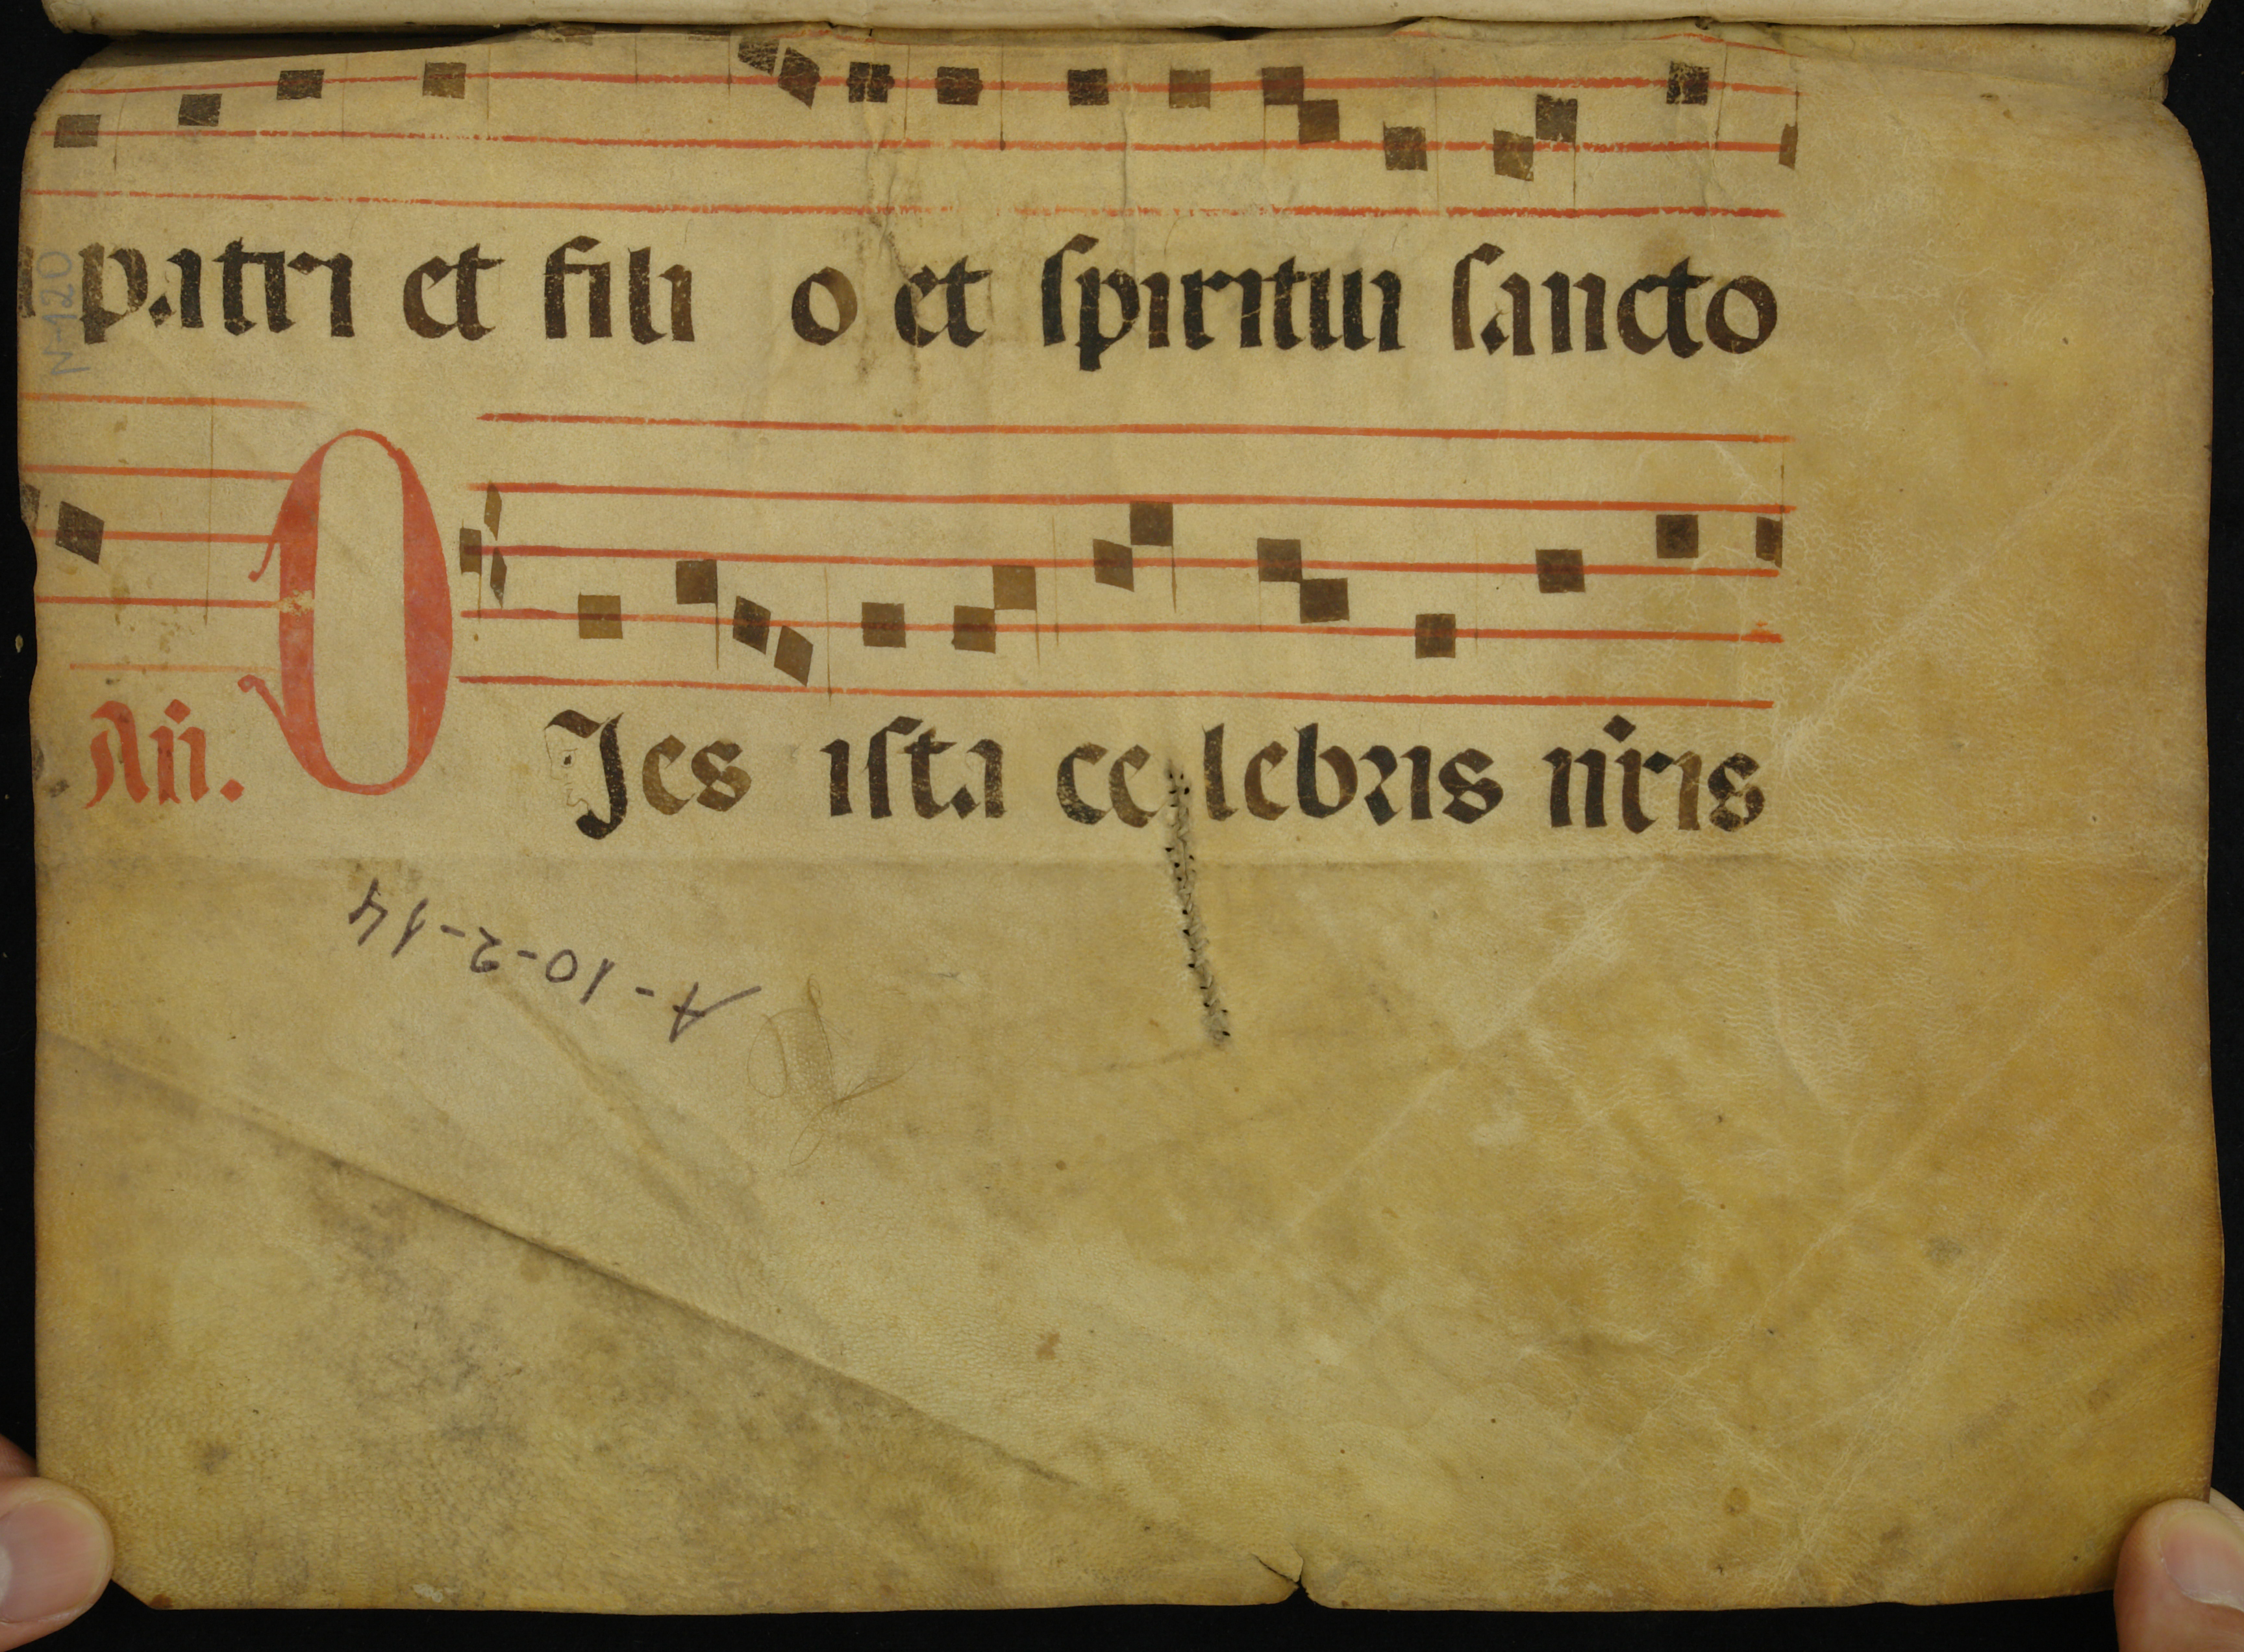 patri et fili o et spiritui sancto
N-120
Añ. O Jes ista ce lebris nr̄is
A-10-2-14